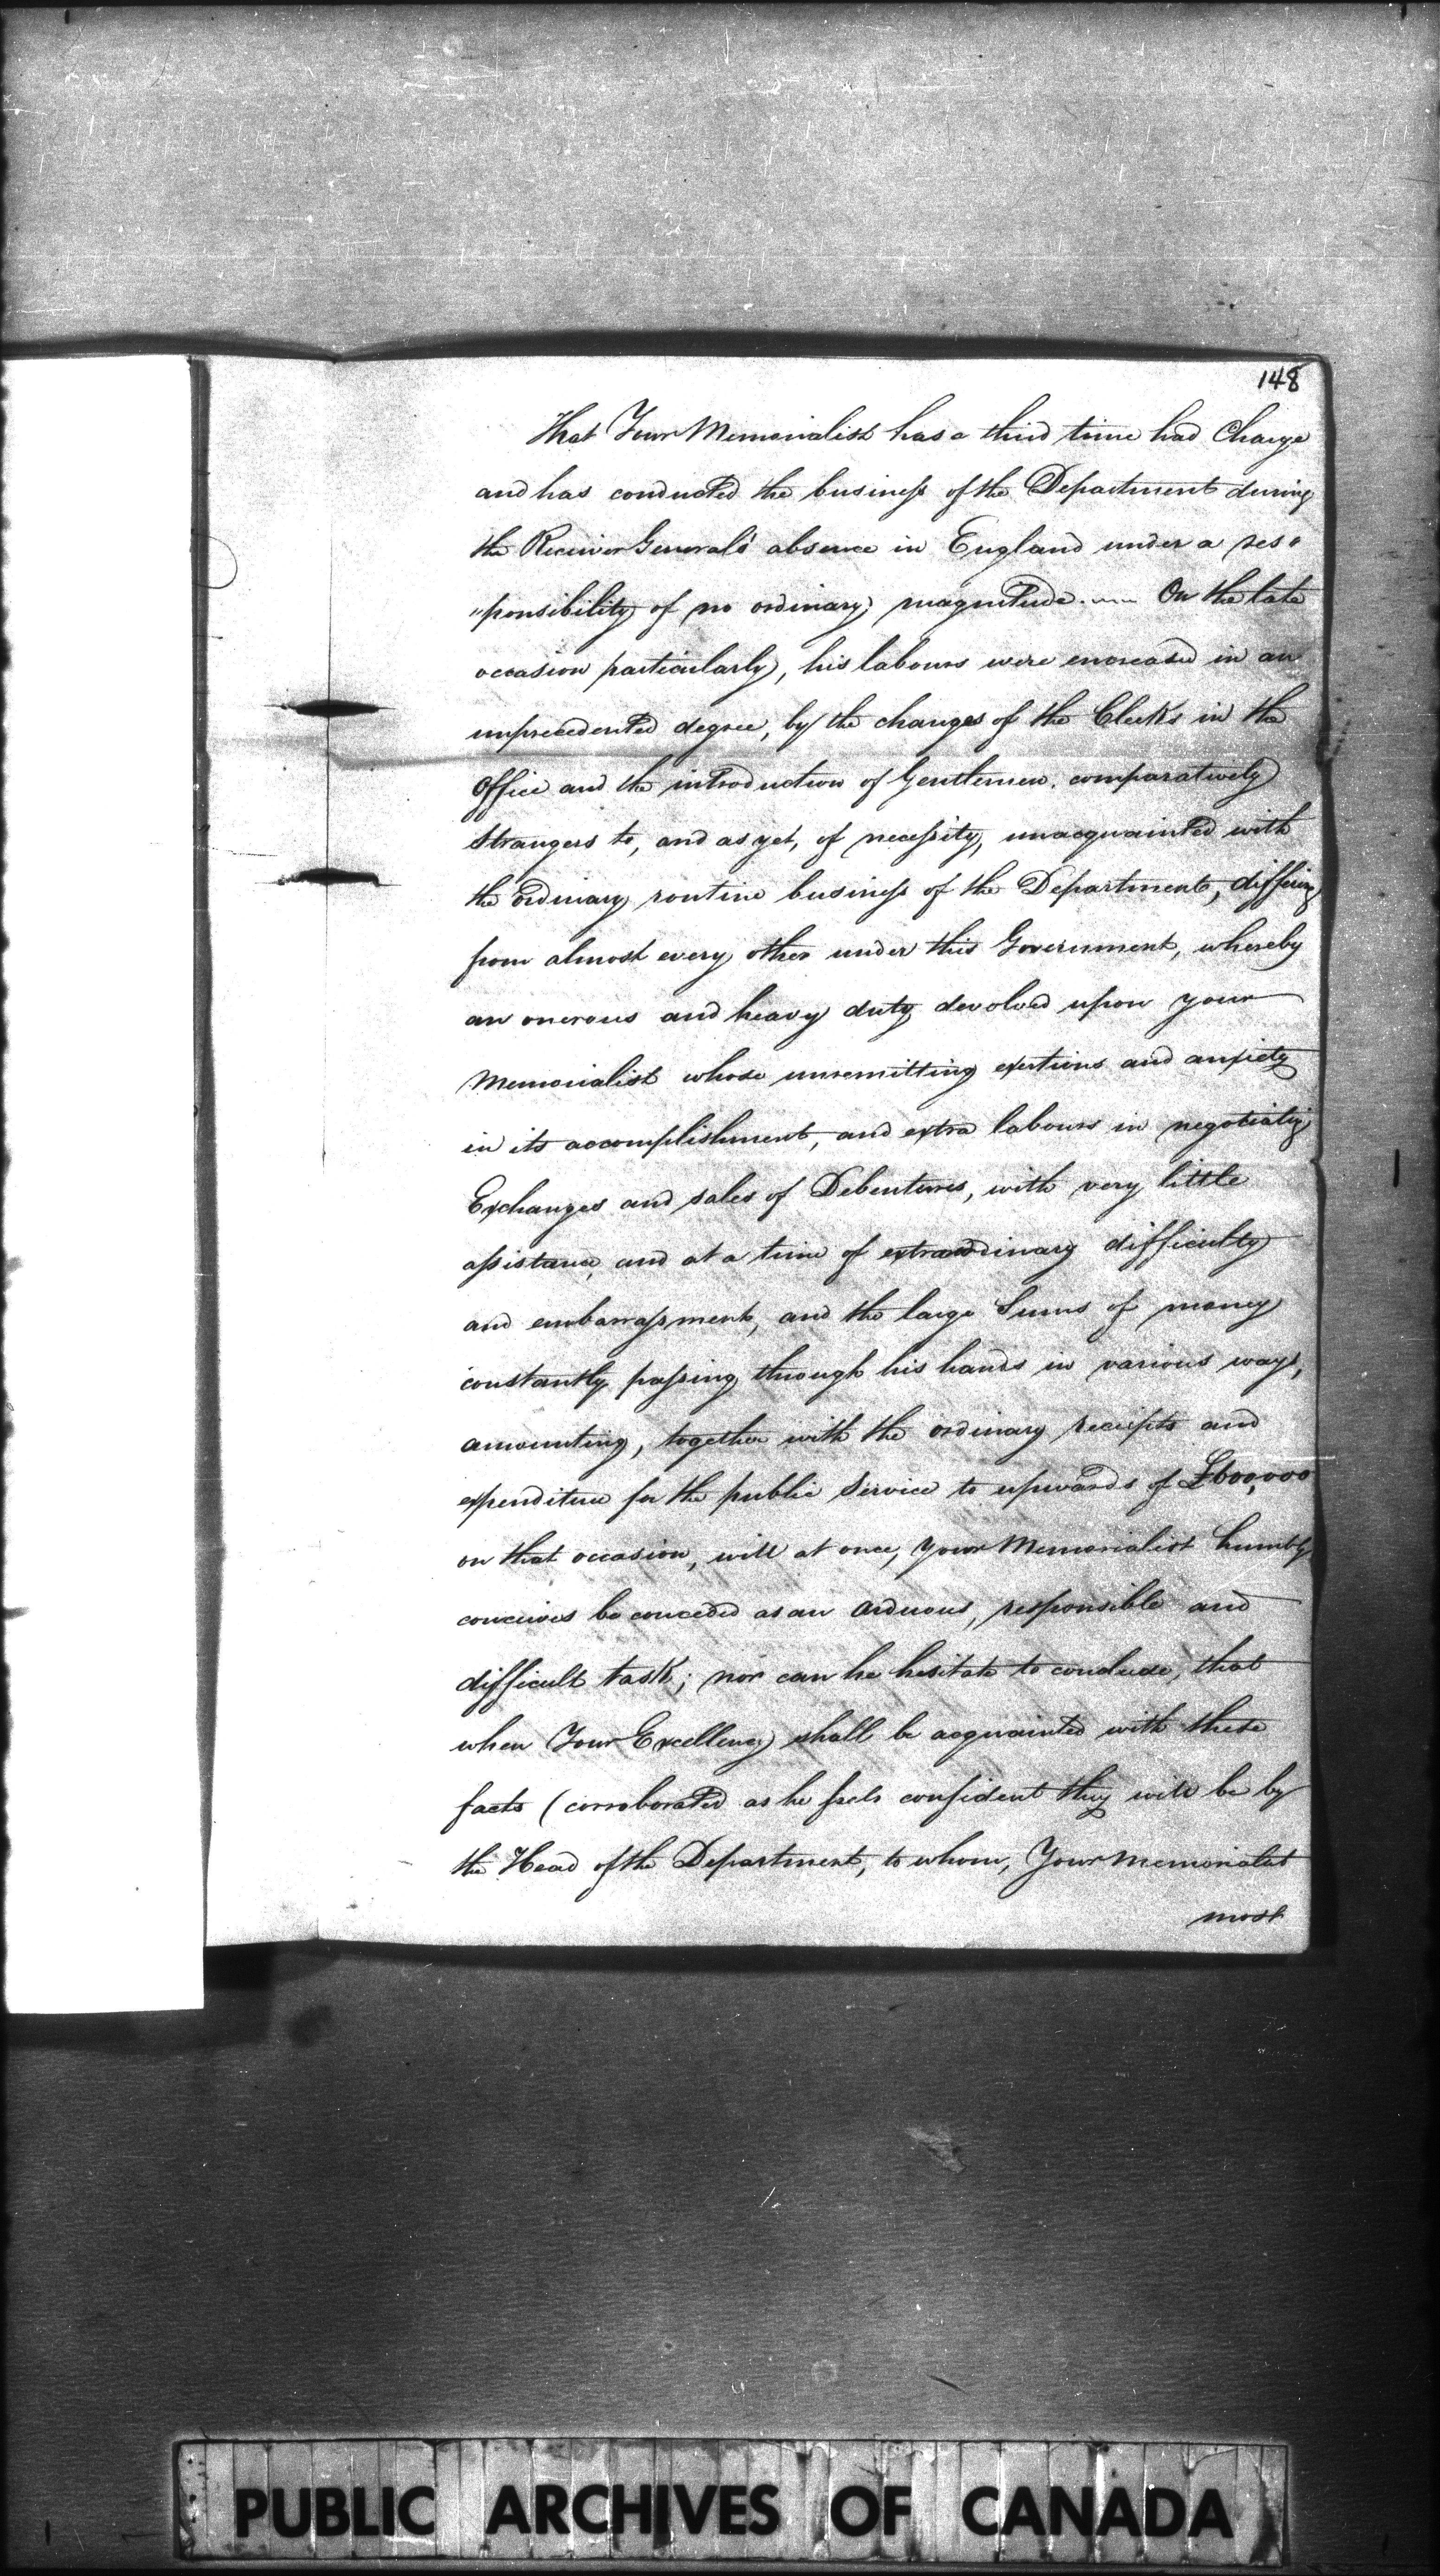 148
That Your Memorialist has a third time had Charge
and has conducted the business of the Department during
the Receiver General's absence in England under a res"
"ponsibility of no ordinary magnitude. On the late
occasion particularly, his labours were encreased in an
unprecedented degree, by the changes of the Clerks in the
Office and the introduction of Gentlemen, comparatively
Strangers to, and as yet, of necessity, unacquainted with
the ordinary routine business of the Department, differing
from almost every other under this Government, whereby
an onerous and heavy duty devolved upon your
Memorialist whose unremitting exertions and anxiety
in its accomplishment, and extra labours in negotiating
Exchanges and sales of Debentures, with very little
assistance, and at a time of extraordinary difficulty
and embarrassment, and the large Sums of money
constantly passing through his hands in various ways,
amounting, together with the ordinary receipts and
expenditure for the public Service to upwards of £600,000
on that occasion, will at once, your Memorialist humbly
conceives be conceded as an arduous, responsible and
difficult task; nor can he hesitate to conclude, that
when Your Excellency shall be acquainted with these
facts (corroborated as he feels confident they will be by
the Head of the Department, to whom, Your Memorialist
most
PUBLIC ARCHIVES OF CANADA